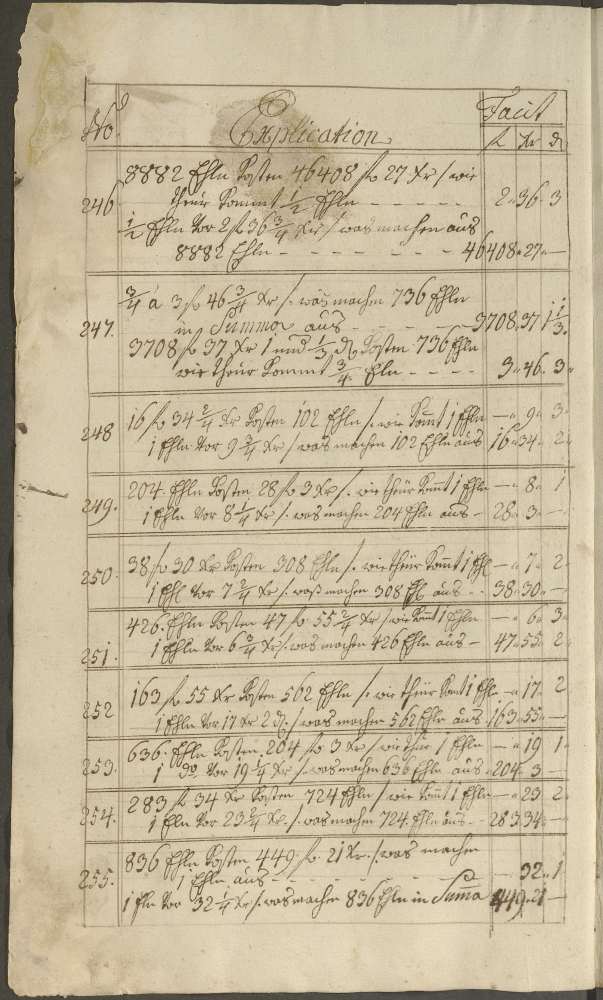 No. Explication Facit
fl Xr d
8882 Ehln kosten 46408 fl 27 Xr /. wie
246 theur kommt 1/2 Ehln - - - - - 2 " 36 " 3
1/2 Ehln vor 2 fl 36 3/4 Xr /. was machen aus
8882 Ehln - - - - - - - - 46408 " 27 " —
3/4 à 3 fl 46 3/4 Xr /. was machen 736 Ehln
247. in Summa aus - - - - - 3708 " 37 1 1/3 "
3708 fl 37 Xr 1 und 1/3 d kosten 736 Ehln
wie theur kommt 3/4 Eln - - - - 3 " 46 " 3 "
16 fl 34 2/4 Xr kosten 102 Ehln /. wie komt 1 Ehln — " 9 " 3 "
248 1 Ehln vor 9 3/4 Xr /. was machen 102 Ehln aus 16 " 34 " 2 "
204. Ehln kosten 28 fl 3 Xr /. wie theur komt 1 Ehln — " 8 " 1
249. 1 Ehln vor 8 1/4 Xr /. was machen 204 Ehln aus - 28 " 3 " —
38 fl 30 Xr kosten 308 Ehln /. wie theur komt 1 Ehl — " 7 " 2 "
250. 1 Ehl vor 7 2/4 Xr /. waß machen 308 Ehl aus - - 38 " 30 " —
426. Ehln kosten 47 fl 55 2/4 Xr /. wie komt 1 Ehln — " 6 " 3 "
251. 1 Ehln vor 6 3/4 Xr /. was machen 426 Ehln aus - 47 " 55 " 2 "
163 fl 55 Xr kosten 562 Ehln /. wie theur komt 1 Ehln — " 17 " 2
252 1 Ehln vor 17 Xr 2 d. /. was machen 562 Ehln aus 163 " 55 " —
636. Ehln kosten 204 fl 3 Xr /. wie theur 1 Ehln — " 19 1 "
253. 1 do. vor 19 1/4 Xr /. was machen 636 Ehln aus 204 " 3 —
283 fl 34 Xr kosten 724 Ehln /. wie komt 1 Ehln — " 23 2 "
254. 1 Eln vor 23 2/4 Xr. /. was machen 724. Ehln aus - - 283 " 34 " —
836 Ehln kosten 449. fl 21 Xr. /. was machen
255. 1 Ehln aus - - - - - - - 32 " 1
1 Eln vor 32 1/4 Xr /. was machen 836 Ehln in Suma 449 " 21 —